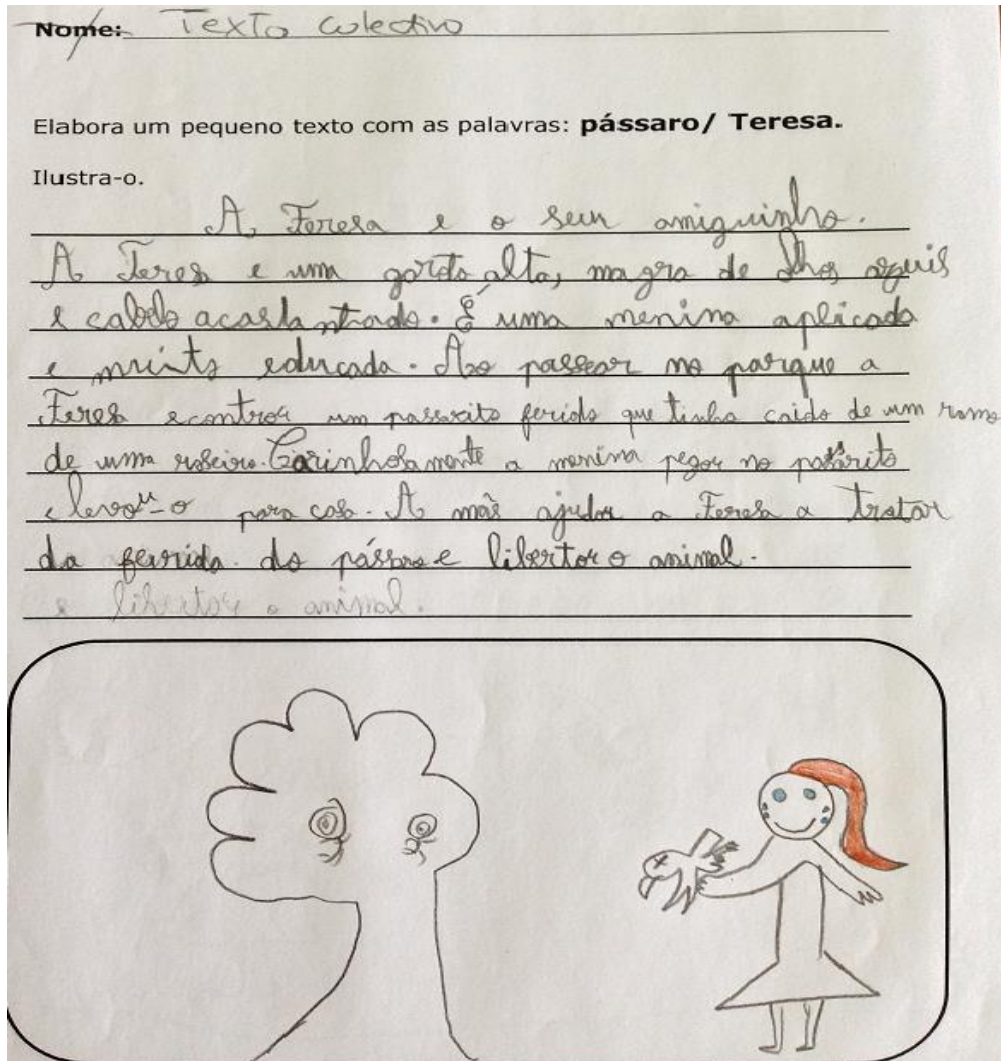 Nome: Texto colectivo
Elabora um pequeno texto com as palavras: pássaro/ Teresa.
Ilustra-o.
A Teresa e o seu amiguinho.
A Teresa e uma garota alta, magra de olhos azuis
e cabelo acastanhado. É uma menina aplicada
e muito educada. Ao passear no parque a
Teresa econtrou um passarito ferido que tinha caido de um ramo
de uma roseira. Carinhosamente a menina pegou no passarito
e levou-o para casa. A mãe ajudou a Teresa a tratar
da ferrida do pássaro e libertou o animal.
e libertou o animal.